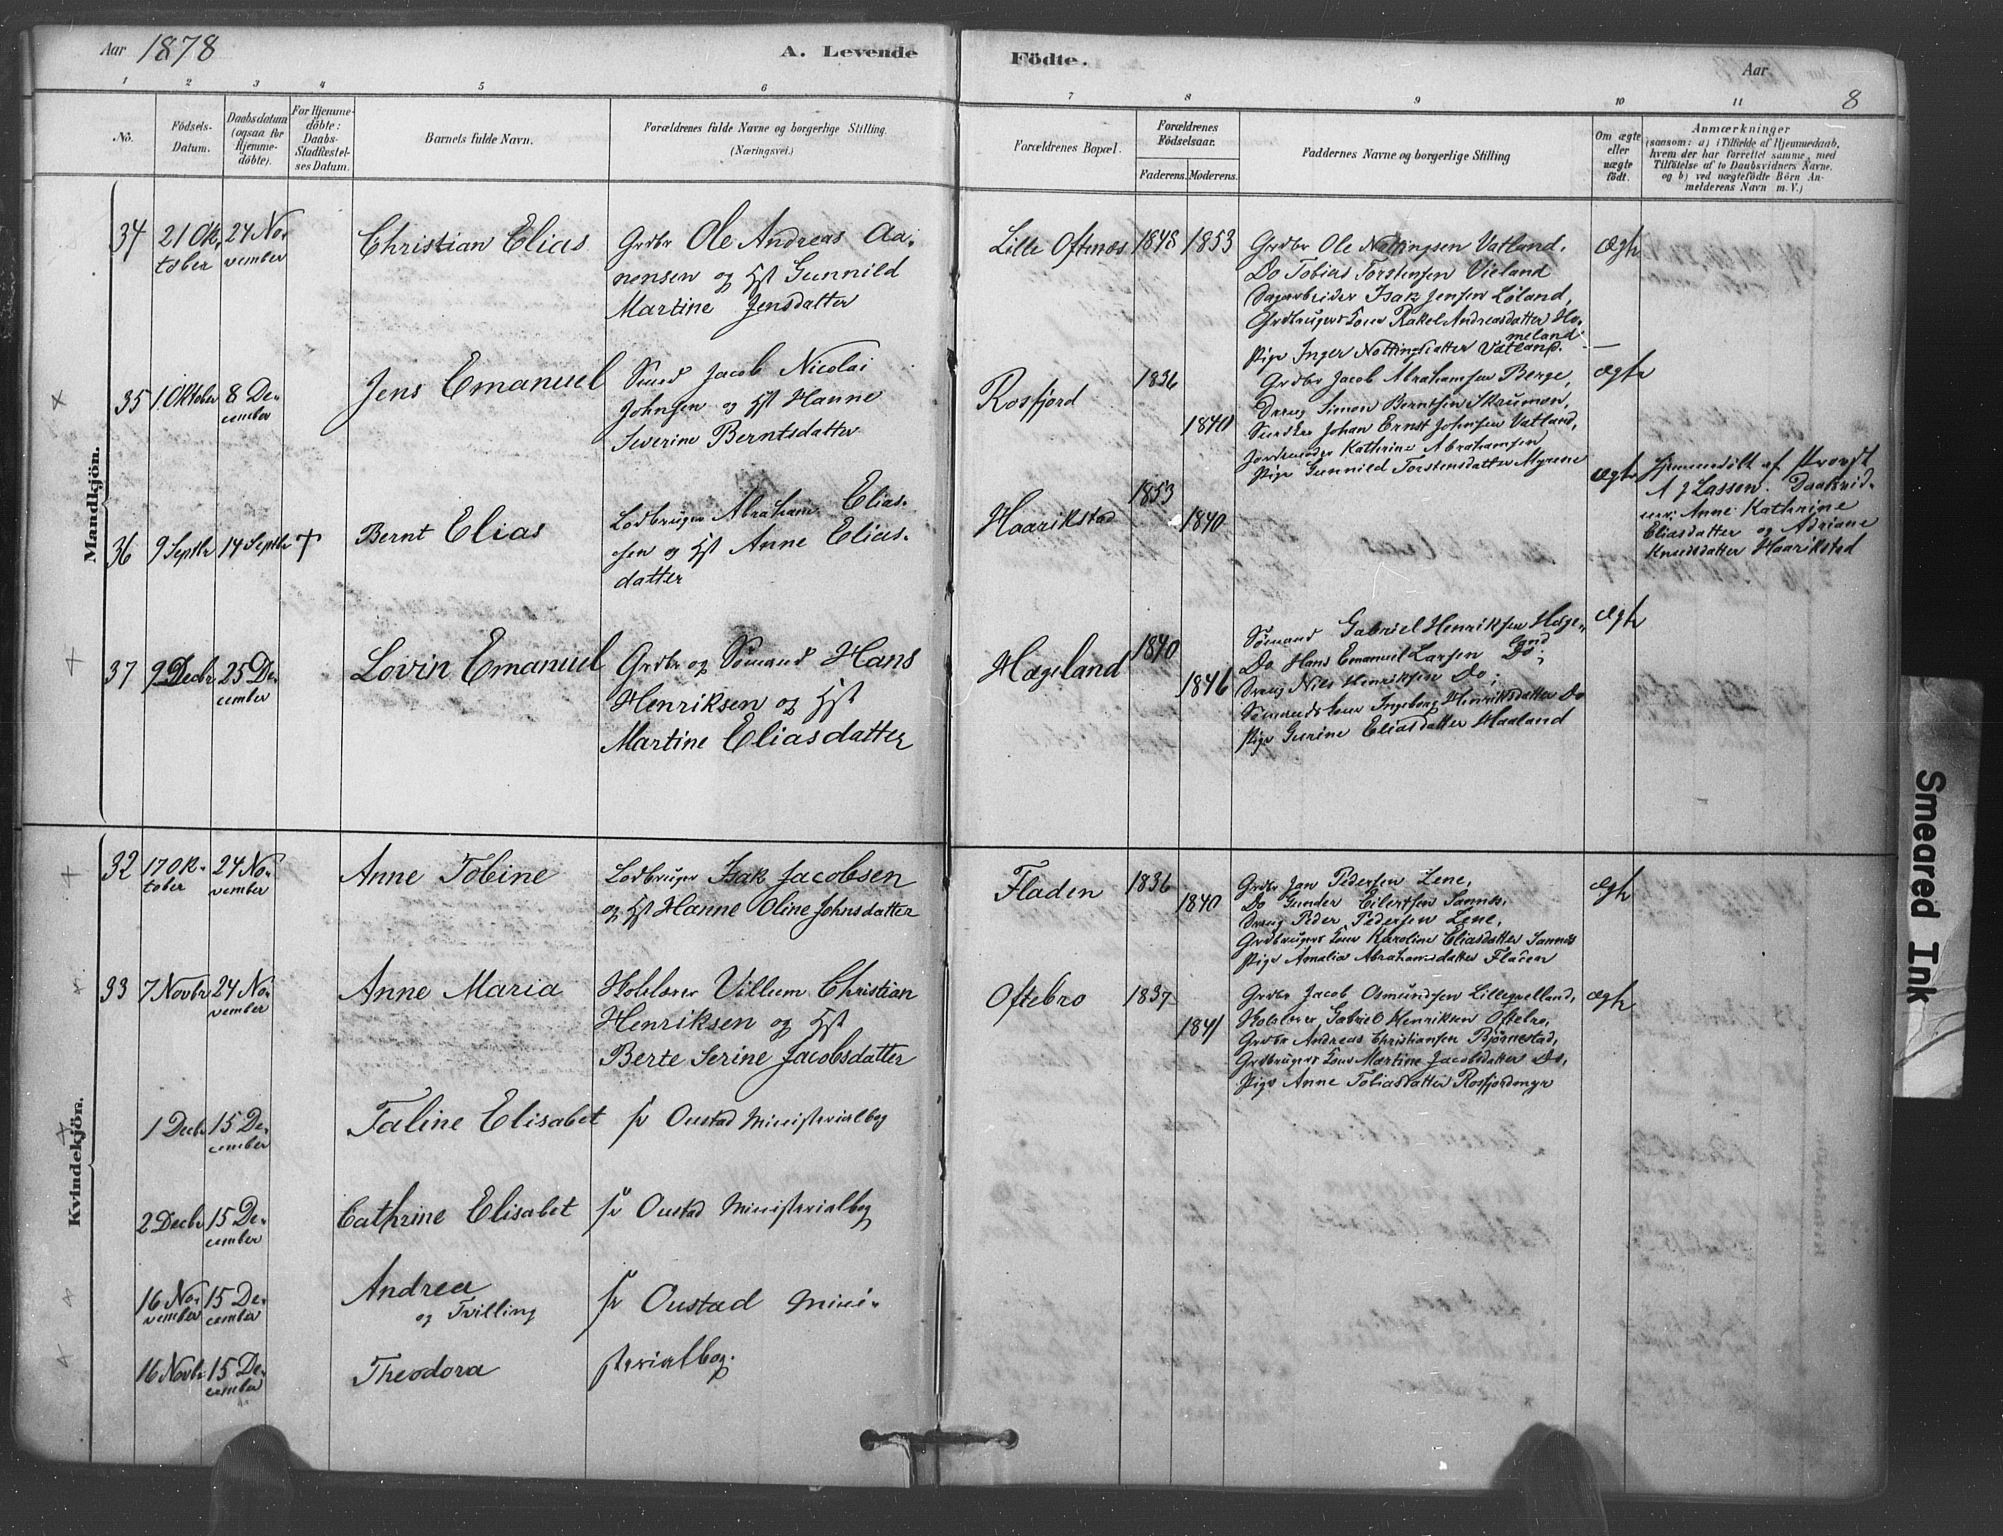 Aar 1878
A. Levende
Födte.
Aar
8
1 2 3 4 5 6 7 8 9 10 11
No.
Födsels-
Datum.
Daabsdatum
(ogsaa for
Hjemme-
döbte).
For Hjemme-
döbte:
Daabs-
Stadfæstel-
ses Datum.
Barnets fulde Navn.
Forældrenes fulde Navne og borgerlige Stilling.
(Næringsvei.)
Forældrenes Bopæl.
Forældrenes
Födselsaar.
Faderens. Moderens.
Faddernes Navne og borgerlige Stilling
Om ægte
eller
uægte
födt.
Anmærkninger
(saasom: a) i Tilfælde af Hjemmedaab,
hvem der har forrettet samme, med
Tilföielse af to Daabsvidners Navne,
og b) ved uægtefödte Börn An-
melderens Navn m. V.)
Mandkjön.
34
21 Ok-
tober
24 No-
vember
Christian Elias
Grdbr Ole Andreas Aa-
nensen og Hst Gunnild
Martine Jensdatter
Lille Oftenæs
1848
1853
Grdbr Ole Nottingsen Vatland.
Do Tobias Torstensen Vieland
Sagarbeider Isak Jensen Löland,
Grdbrugers Kone Rakel Andreasdatter Ho-
meland
Pige Inger Nottingsdatter Vatland.
Ægte
35
1 Oktober
8 De-
cember
Jens Emanuel
Smed Jacob Nicolai
Johnsen og Hst Hanne
Severine Berntsdatter
Rosfjord
1836
1840
Grdbr Jacob Abrahamsen Berge,
Dreng Simon Berntsen Skaumon,
Snedker Johan Ernst Johnsen Vatland,
Jordmoder Kathrine Abrahamsen
Pige Gunnild Torstensdatter Myrene
ægte
36
9 Septbr
14 Septbr
+
Bernt Elias
Lodbruger Abraham Elias-
sen og Hst Anne Elias-
datter
Haarikstad
1853
1840
ægte
Hjemmedöbt af Provst
A J Lassen. Daabsvid-
ner: Anne Kathrine
Eliasdatter og Adriane
Knudsdatter Haarikstad
37
9 Decbr
25 De-
cember
Lovin Emanuel
Grdbr og Sömand Hans
Henriksen og Hst
Martine Eliasdatter
Hægeland
1840
1846
Sömand Gabriel Henriksen Hæge-
land
Do Hans Emanuel Larsen Do;
Dreng Nils Henriksen Do;
Sömands Kone Ingeborg Henriksdatter Do
Pige Gurine Eliasdatter Haaland
ægte
Kvindekjön.
32
17 Ok-
tober
24 No-
vember
Anne Tobine
Lodbruger Isak Jacobsen
og Hst Hanne Oline Johnsdatter
Fladen
1836
1840
Grdbr Jan Pedersen Lene,
Do Gunder Eilertsen Sannes,
Dreng Peder Pedersen Lene,
Grdbrugers Kone Karoline Eliasdatter Sannes
Pige Amalia Abrahamsdatter Fladen
ægte
33
7 Novbr
24 No-
vember
Anne Maria
Villum Christian
Henriksen og Hst
Berte Serine Jacobsdatter
Oftebro
1837
1841
Grdbr Jacob Osmundsen
Gabriel Henriksen Oftebro,
Grdbr Andreas Christiansen Björnestad,
Grdbrugers Kone Martine Jacobsdatter Do,
Pige Anne Tobiasdatter Rosfjordmyr
ægte
1 Decbr
15 De-
cember
Taline Elisabet
se Oustad Ministerialbog
2 Decbr
15 De-
cember
Cathrine Elisabet
se Oustad Ministerialbog
16 No-
vember
15 De-
cember
Andrea
og Tvilling
se Oustad Mini-
16 Novbr
15 De-
cember
Theodora
sterialbog.
Smeared Ink